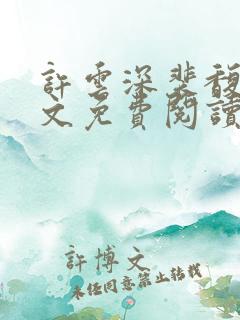 許雲深裴馥
文免費閱讀
許博文
未经同意禁止转载